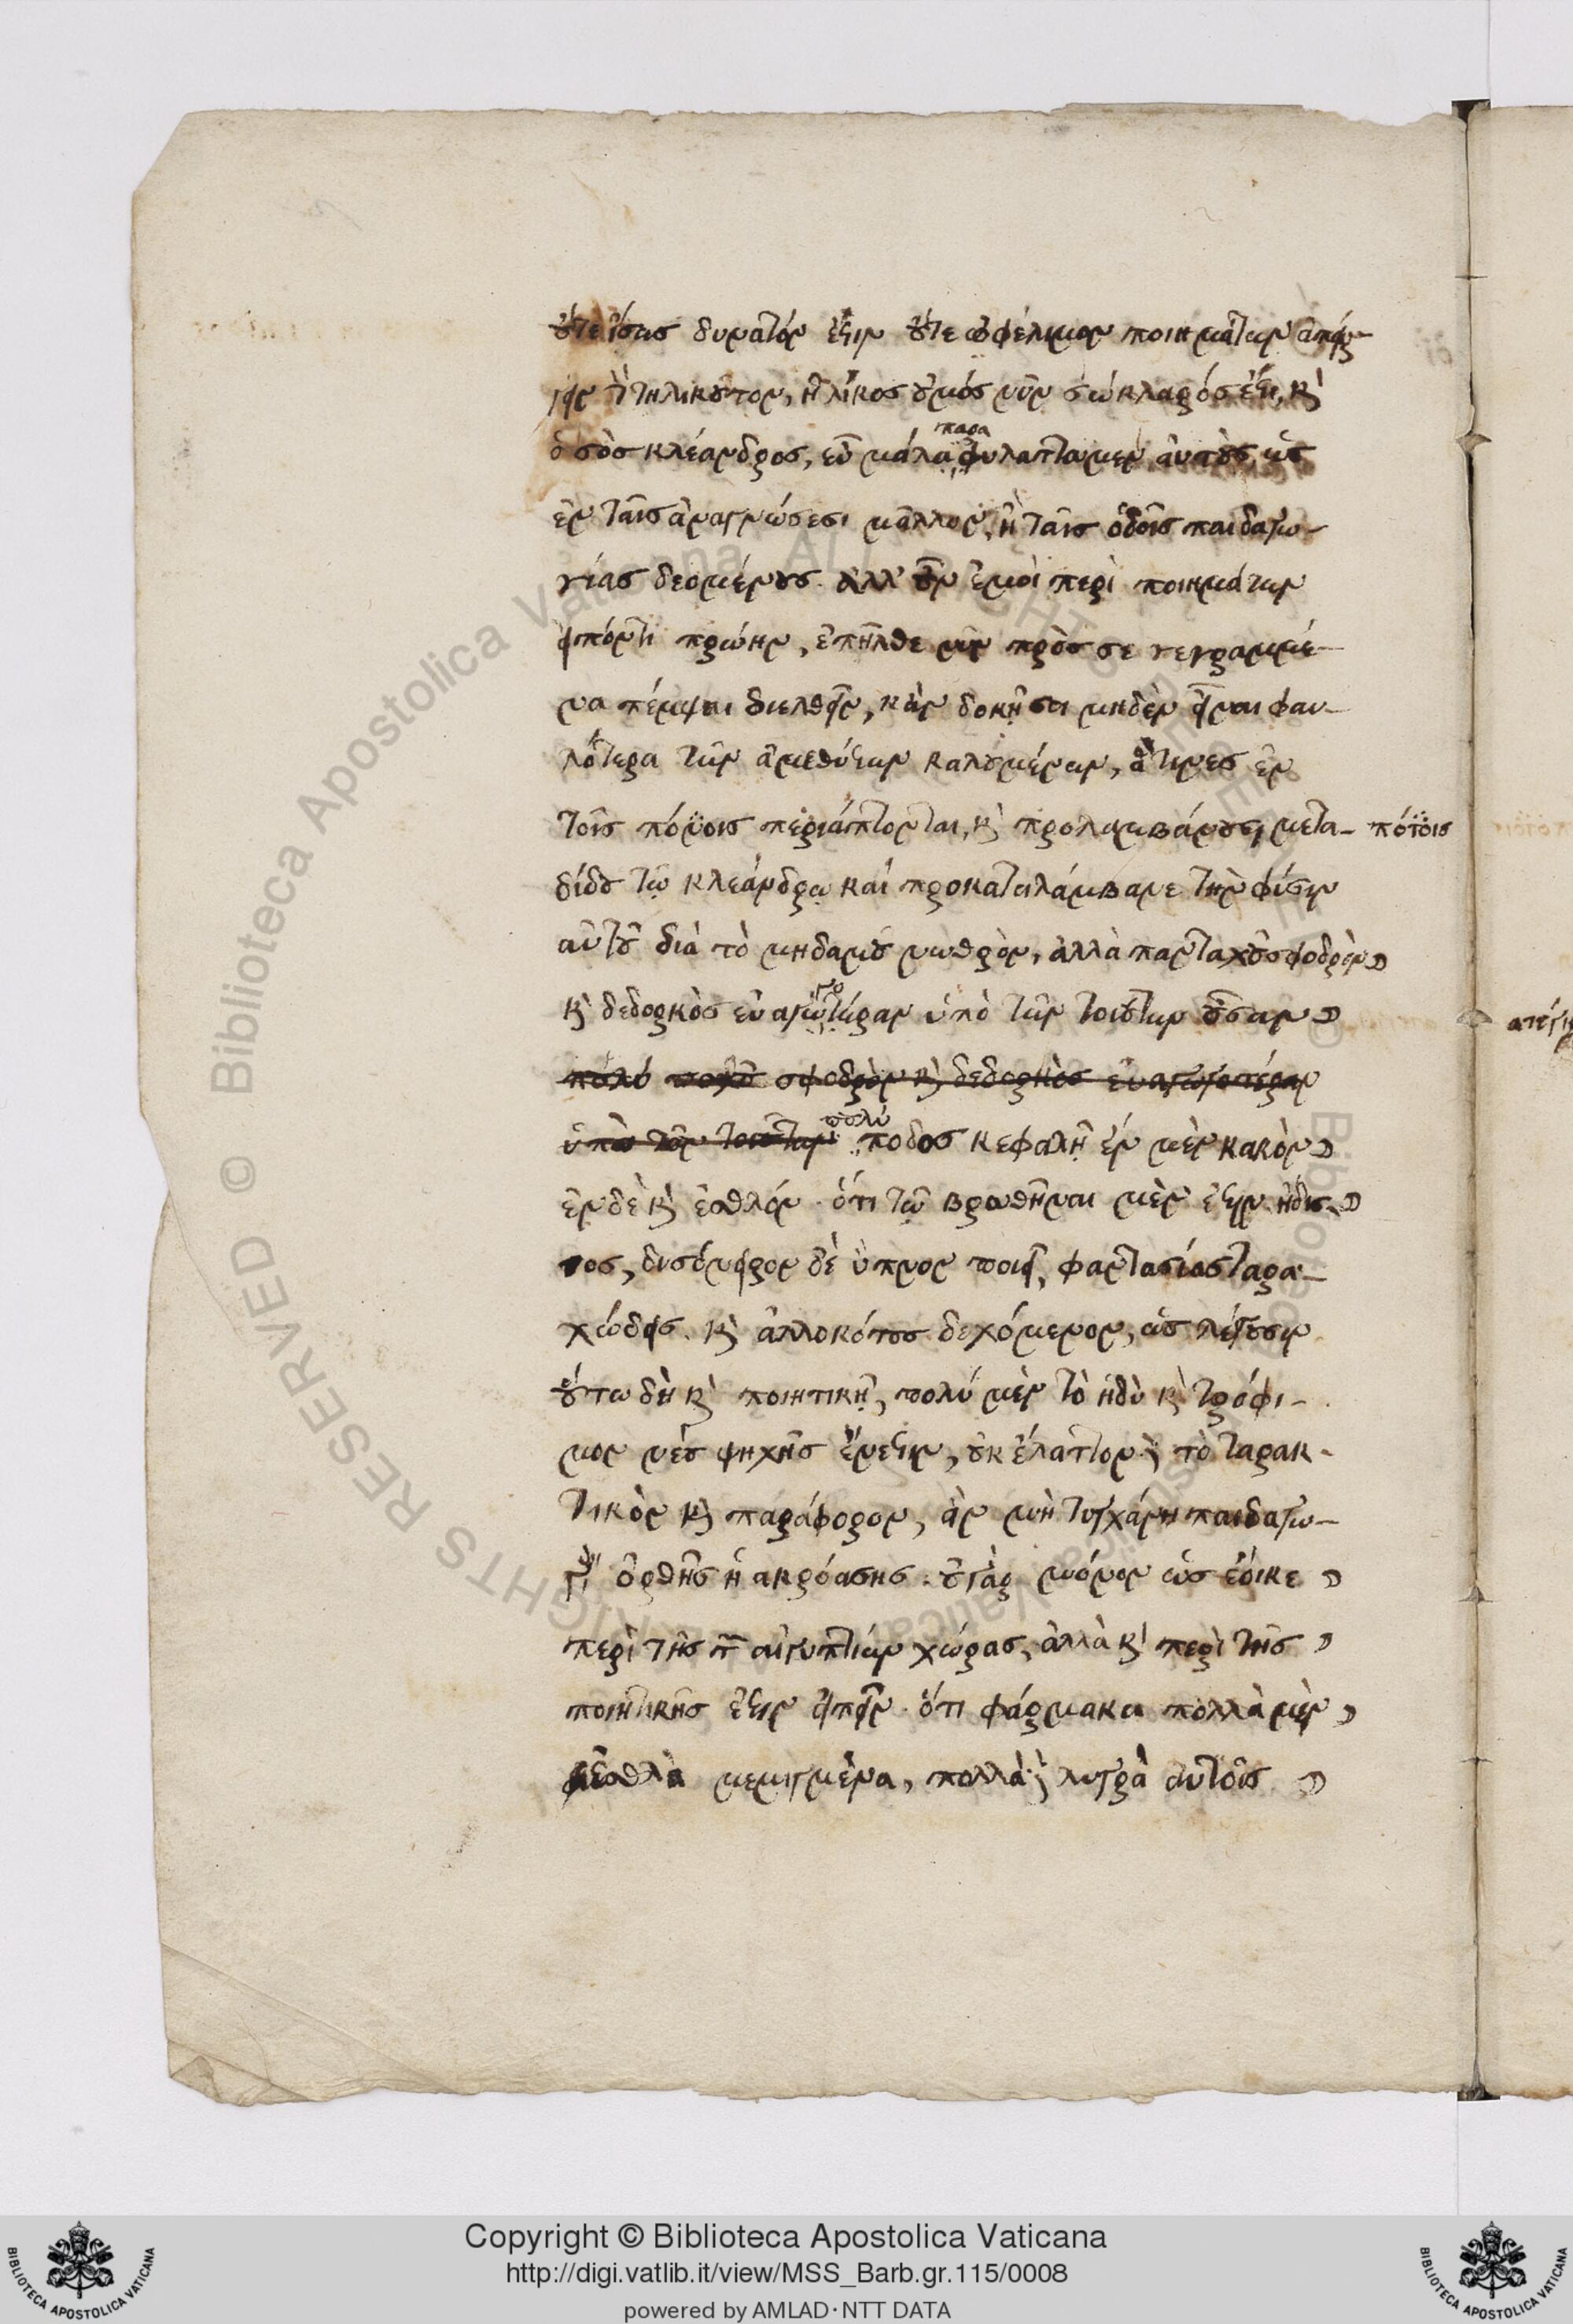 οὔτε ἴσως δυνατόν ἐστιν οὔτε ὠφέλιμον ποιημάτων ἀπείρ-
γειν τὸ τηλικοῦτον, ἡλίκος οὑμός νῦν σώκλαρός ἐστι, κὶ
ὁ σὸς κλέανδρος, εὖ μάλα παραφυλάττωμεν αὐτοὺς, ὡς
ἐν ταῖς ἀναγνώσεσι μᾶλλον, ἢ ταῖς ὁδοῖς παιδαγω-
γίας δεομένους. ἀλλ' οὖν ἐμοὶ περὶ ποιημάτων
εἰπόντι πρώην, ἐπῆλθε νῦν πρὸς σε γεγραμμέ-
να πέμψαι διελθεῖν, κἂν δοκῇ σοι μηδὲν εἶναι φαυ-
λότερα τῶν ἀμεθύστων καλουμένων, ἅτινες ἐν
τοῖς πόνοις περιάπτονται, κὶ προλαμβάνουσι, μετα-
πότοις
δίδου τῷ κλεάνδρῳ καί προκαταλάμβανε τὴν φύσιν
αὐτοῦ διὰ τὸ μηδαμοῦ νωθρὸν, ἀλλὰ πανταχοῦ σφοδρὸν
κὶ δεδορκὸς εὐαγωγοτέραν ὑπὸ τῶν τοιούτων οὖσαν
πολύ σφοδρὸν κὶ δεδορκὸς εὐαγωγοτέραν
ὑπὸ τῶν τοιούτων πολύποδος κεφαλῇ ἐν μὲν κακὸν
ἐν δὲ κὶ ἐσθλόν. ὅτι τῷ βρωθῆναι μὲν ἐστιν ἥδισ-
τος, δυσόνειρον δὲ ὕπνον ποιεῖ, φαντασίας ταρα-
χώδεις κὶ ἀλλοκότους δεχόμενον, ὡς λέγουσιν
οὕτω δὴ κὶ ποιητικῇ, πολύ μὲν τὸ ἡδὺ κὶ τρόφι-
μον νέου ψηχῆς ἔνεστιν, οὐκ ἔλαττον δὲ τὸ ταρακ-
τικὸν κὶ παράφορον, ἂν μὴ τυγχάνη παιδαγω-
γίας ὀρθῆς ἡ ακρόασης. οὐ γὰρ μόνον ὡς ἔοικε
περὶ τῆς τῶν αἰγυπτίων χώρας, ἀλλὰ κὶ περὶ τῆς
ποιητικῆς ἔστιν εἰπεῖν. ὅτι φάρμακα πολλὰ μὲν
ἐσθλὰ μεμιγμένα, πολλὰ δὲ λυγρὰ αὐτοῖς
Copyright © Biblioteca Apostolica Vaticana
http://digi.vatlib.it/view/MSS_Barb.gr.115/0008
powered by AMLAD·NTT DATA